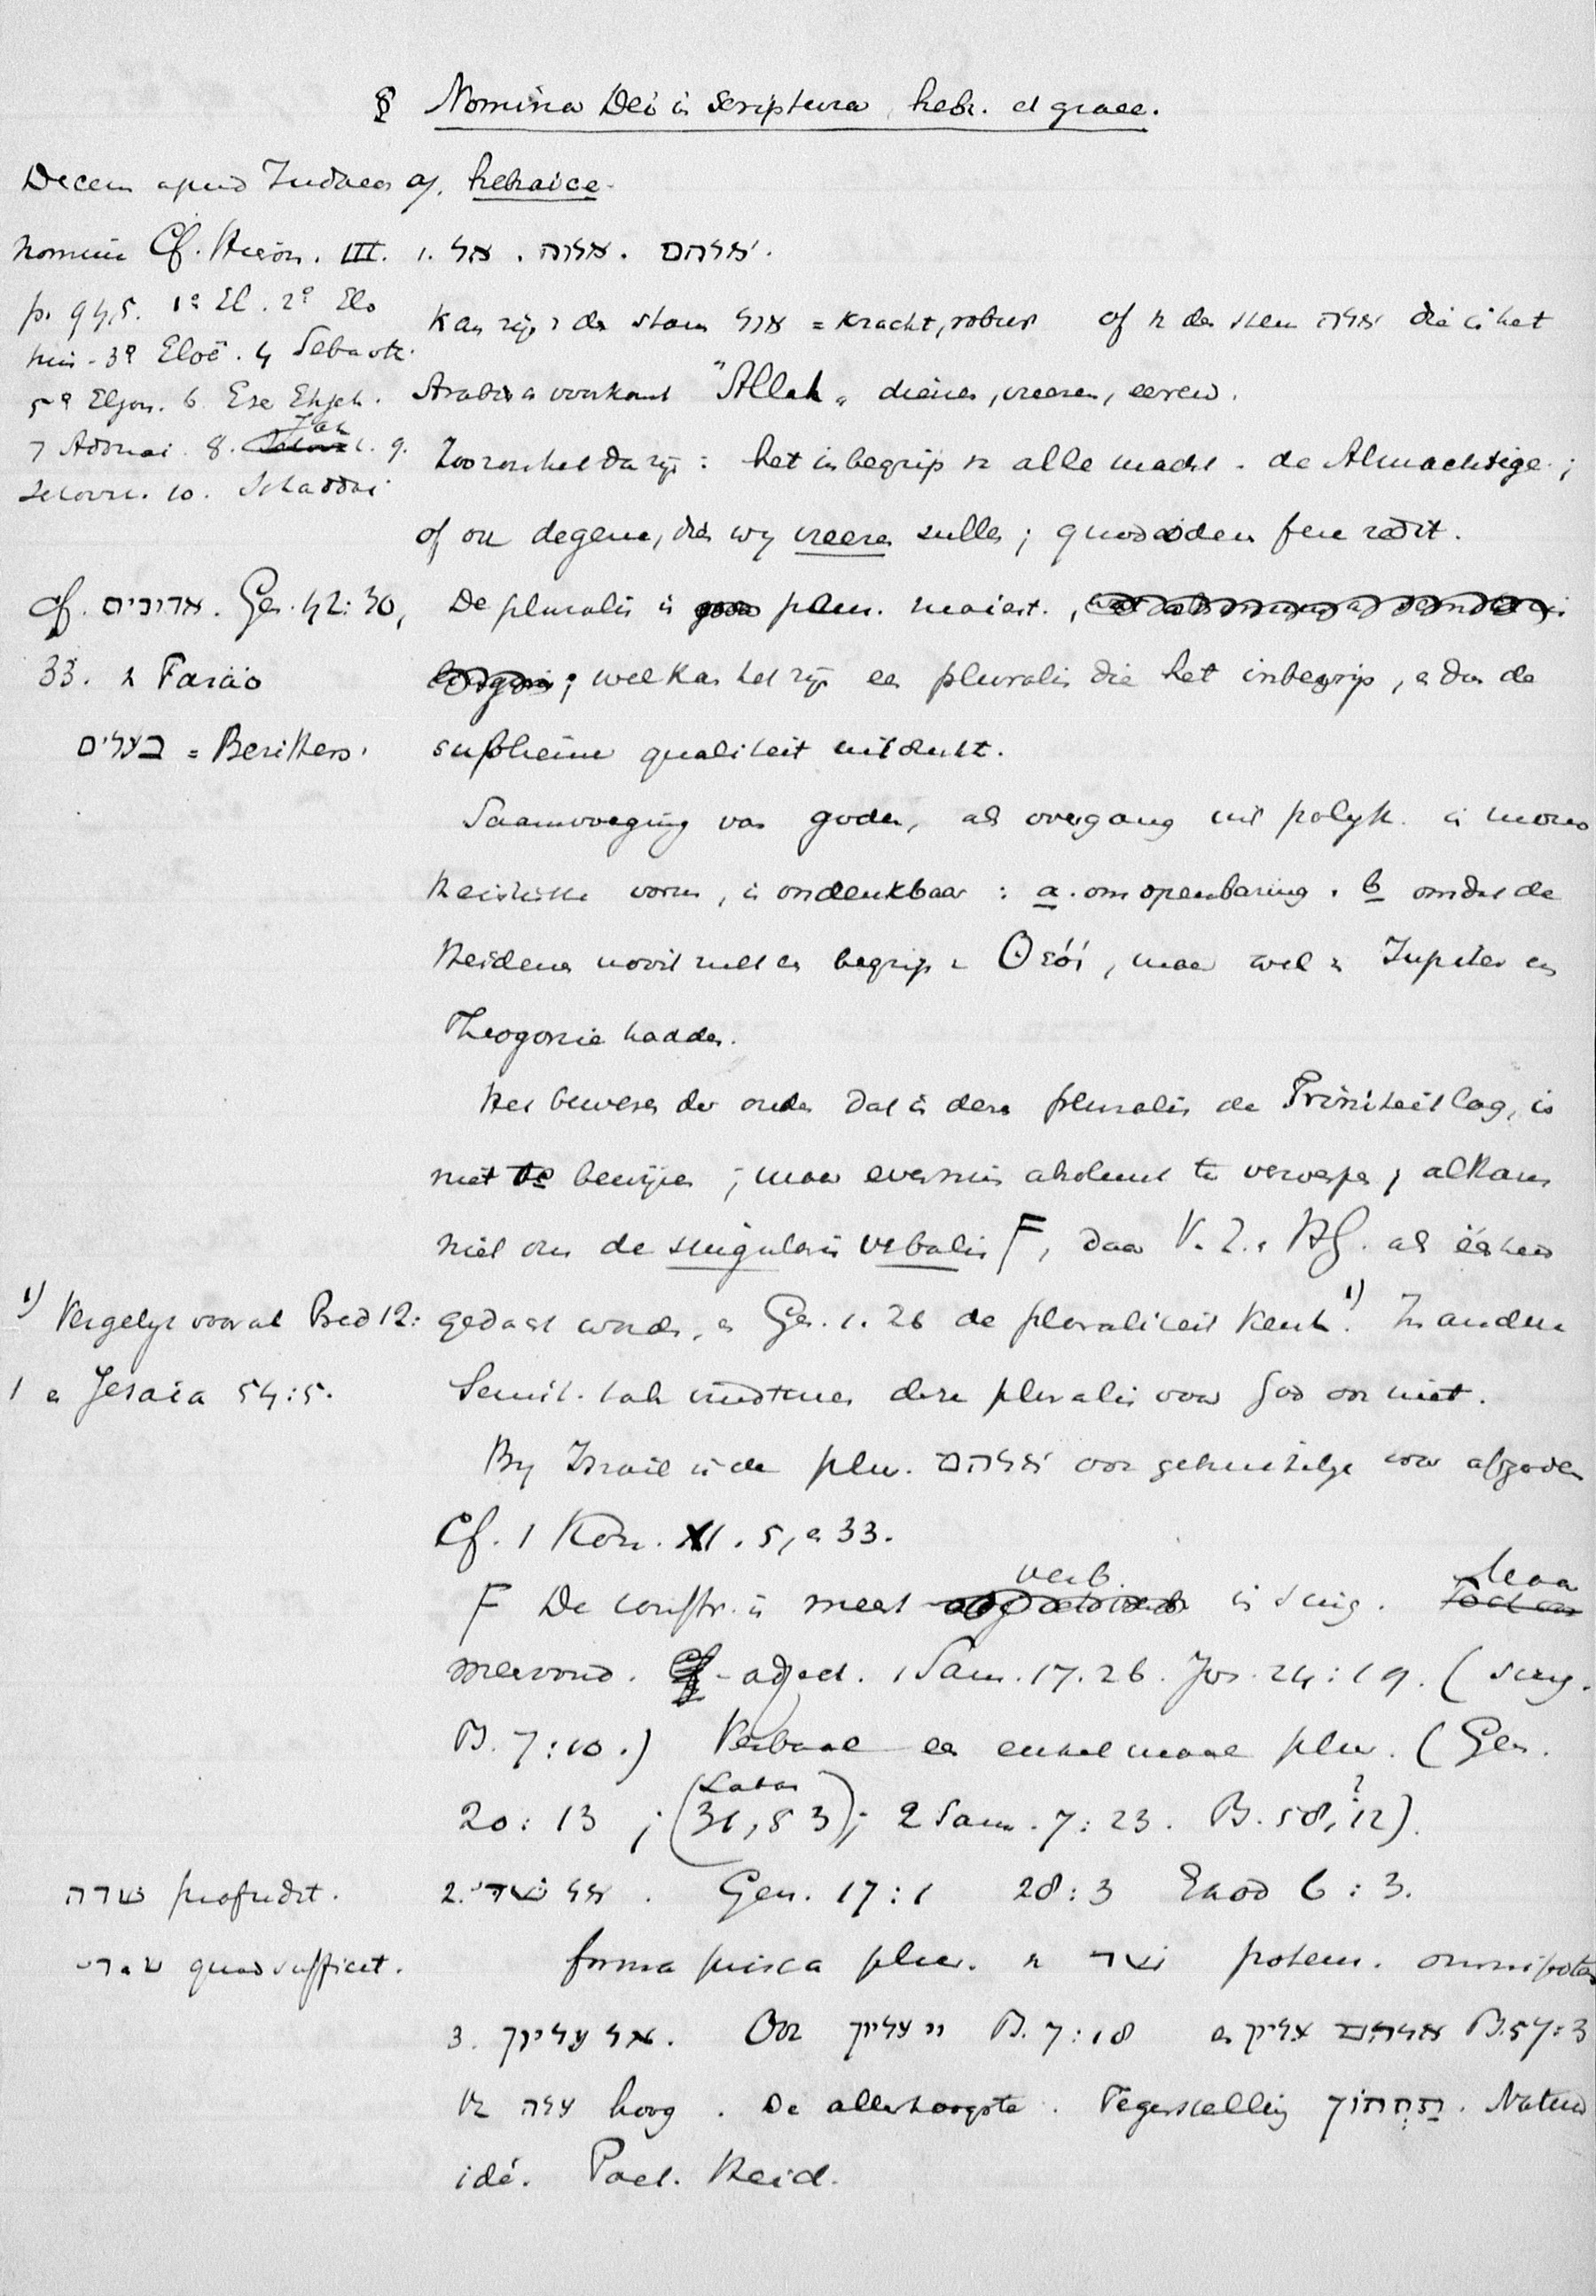 § Nomina Dei in Scriptura, hebr. et graec.
Decem apud Judaeos
nomin Cf. Hieron. III.
p. 94,5. 1º El. 2º Elo
him - 3º Eloë. 4 Sebaoth.
5º Eljon. 6 Ese Ehjeh.
7 Adonai. 8. Jah 9.
Jehova. 10. Schaddai
hebraice.
1. אל . אלוה . אלהים.
Kan zijn v de stam אול = kracht, robur of v den stam אלה die in het
Arabisch voorkomt "Allah" dienen, vreezen, eeren.
Zoo zou het dan zijn : het inbegrip v alle macht. de Almachtige ;
of ook degene, dien wij vreezen zullen ; quod
cf. אדונים. Gen. 42:30,
33. v Farao
בעלים = Bezitters.
De pluralis is plur. maiest.,
; wel kan het zijn een pluralis die het inbegrip, en dus de
sublieme qualiteit uitdrukt.
Saamvoeging van goden, als overgang uit polyth. in mono
theistische vorm, is ondenkbaar : a. om openbaring. b omdat de
Heidenen nooit zulk een begrip v Θεόι, maar wel v Jupiter en
Theogonie hadden.
Het beweren der ouden dat in deze pluralis de Triniteit lag, is
niet te bewijzen ; maar evenmin absoluut te verwerpen ; althans
niet om de singularis verbalis F, daar V. Z. e HG. als éénheid
1) Vergelijk vooral Pred 12:
1 en Jesaia 54:5.
gedacht worden, en Gen. 1. 26 de pluraliteit kent. 1) In andere
Semit. talen vindt men deze pluralis voor God ook niet.
By Israël is de plur. אלהים ook gebruikelijk voor afgoden
Cf. 1 Kon. XI. 5, en 33.
F De constr. is meest verb. in sing. Maar
meervoud. - adject. 1 Sam. 17.26. Jos. 24:19. (sing.
Ps. 7:10.) Verbaal een enkelmaal plur. (Gen.
20:13 ; (Laban 31, 53) ; 2 Sam. 7:23. Ps. 58, 12 ?).
שדה profudit.
שדי quod sufficit.
2. אל שדי. Gen. 17:1 28:3 Exod 6:3.
forma prisca plur. v שד potens. omnipotens
3. אל עליון. Ook יי עליון Ps. 7:18 en אלהים עליון Ps. 57:3
v עלה hoog. De allerhoogste. Tegenstelling תחתון. Natuur
idé. Poet. Heid.